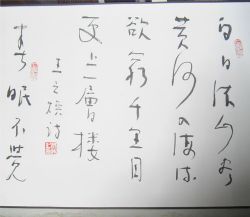 白日依山尽
黄河入海流
欲窮千里目
更上一層樓
王之涣詩
春眠不觉